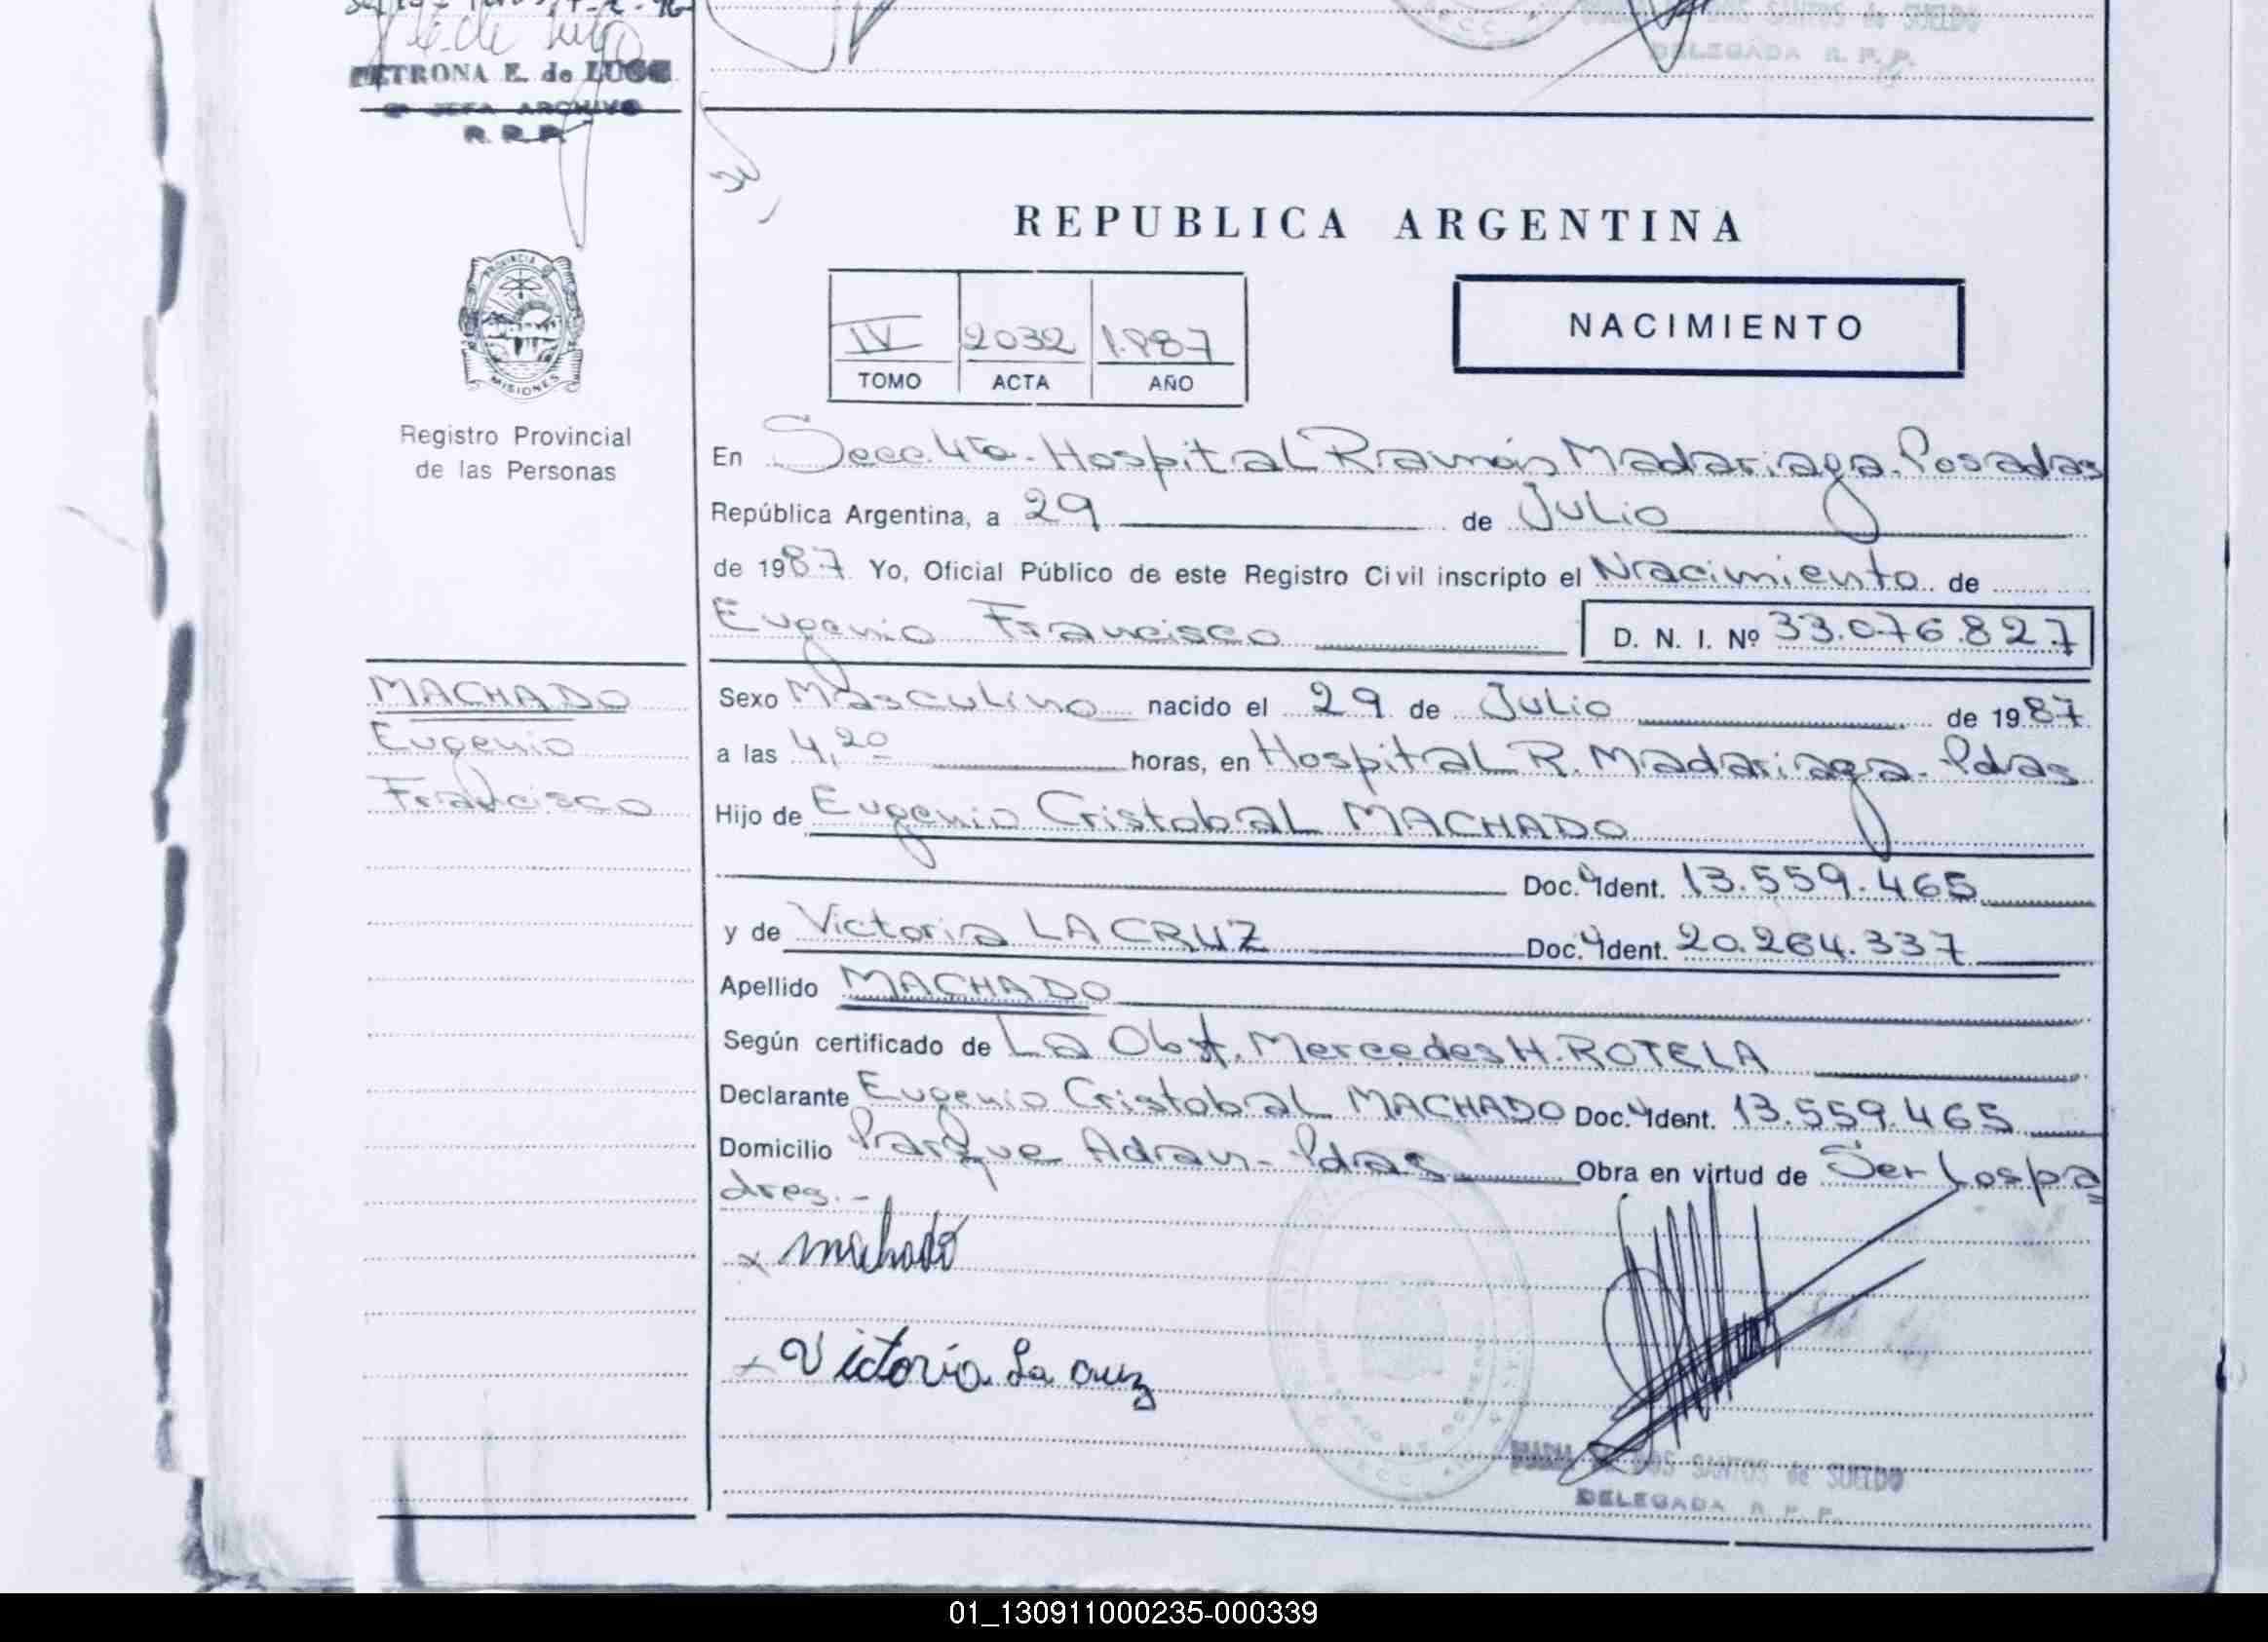 PETRONA E. de LUGE
JEFA ARCHIVO
R. R. P.
DOS SANTOS de SUELDO
DELEGADA R. P. P.
REPUBLICA ARGENTINA
PROVINCIA DE
MISIONES
Registro Provincial
de las Personas
IV 2032 1.987
TOMO ACTA AÑO
NACIMIENTO
En Secc. 4ta. Hospital Ramón Madariaga. Posadas
República Argentina, a 29 de Julio
de 1987 Yo, Oficial Público de este Registro Civil inscripto el Nacimiento de
Eugenio Francisco D. N. I. Nº 33.076.827
MACHADO
Eugenio
Francisco
Sexo Masculino nacido el 29 de Julio de 1987
a las 4,20 horas, en Hospital R. Madariaga - Pdas
Hijo de Eugenio Cristobal MACHADO
Doc. Ident. 13.559.465
y de Victoria LA CRUZ Doc. Ident. 20.264.337
Apellido MACHADO
Según certificado de La Obst. Mercedes H. ROTELA
Declarante Eugenio Cristobal MACHADO Doc. Ident. 13.559.465
Domicilio Parque Adran - Pdas Obra en virtud de Ser Los pa
dres.-
x machado
x Victoria La cruz
DOS SANTOS de SUELDO
DELEGADA R. P. P.
01_130911000235-000339